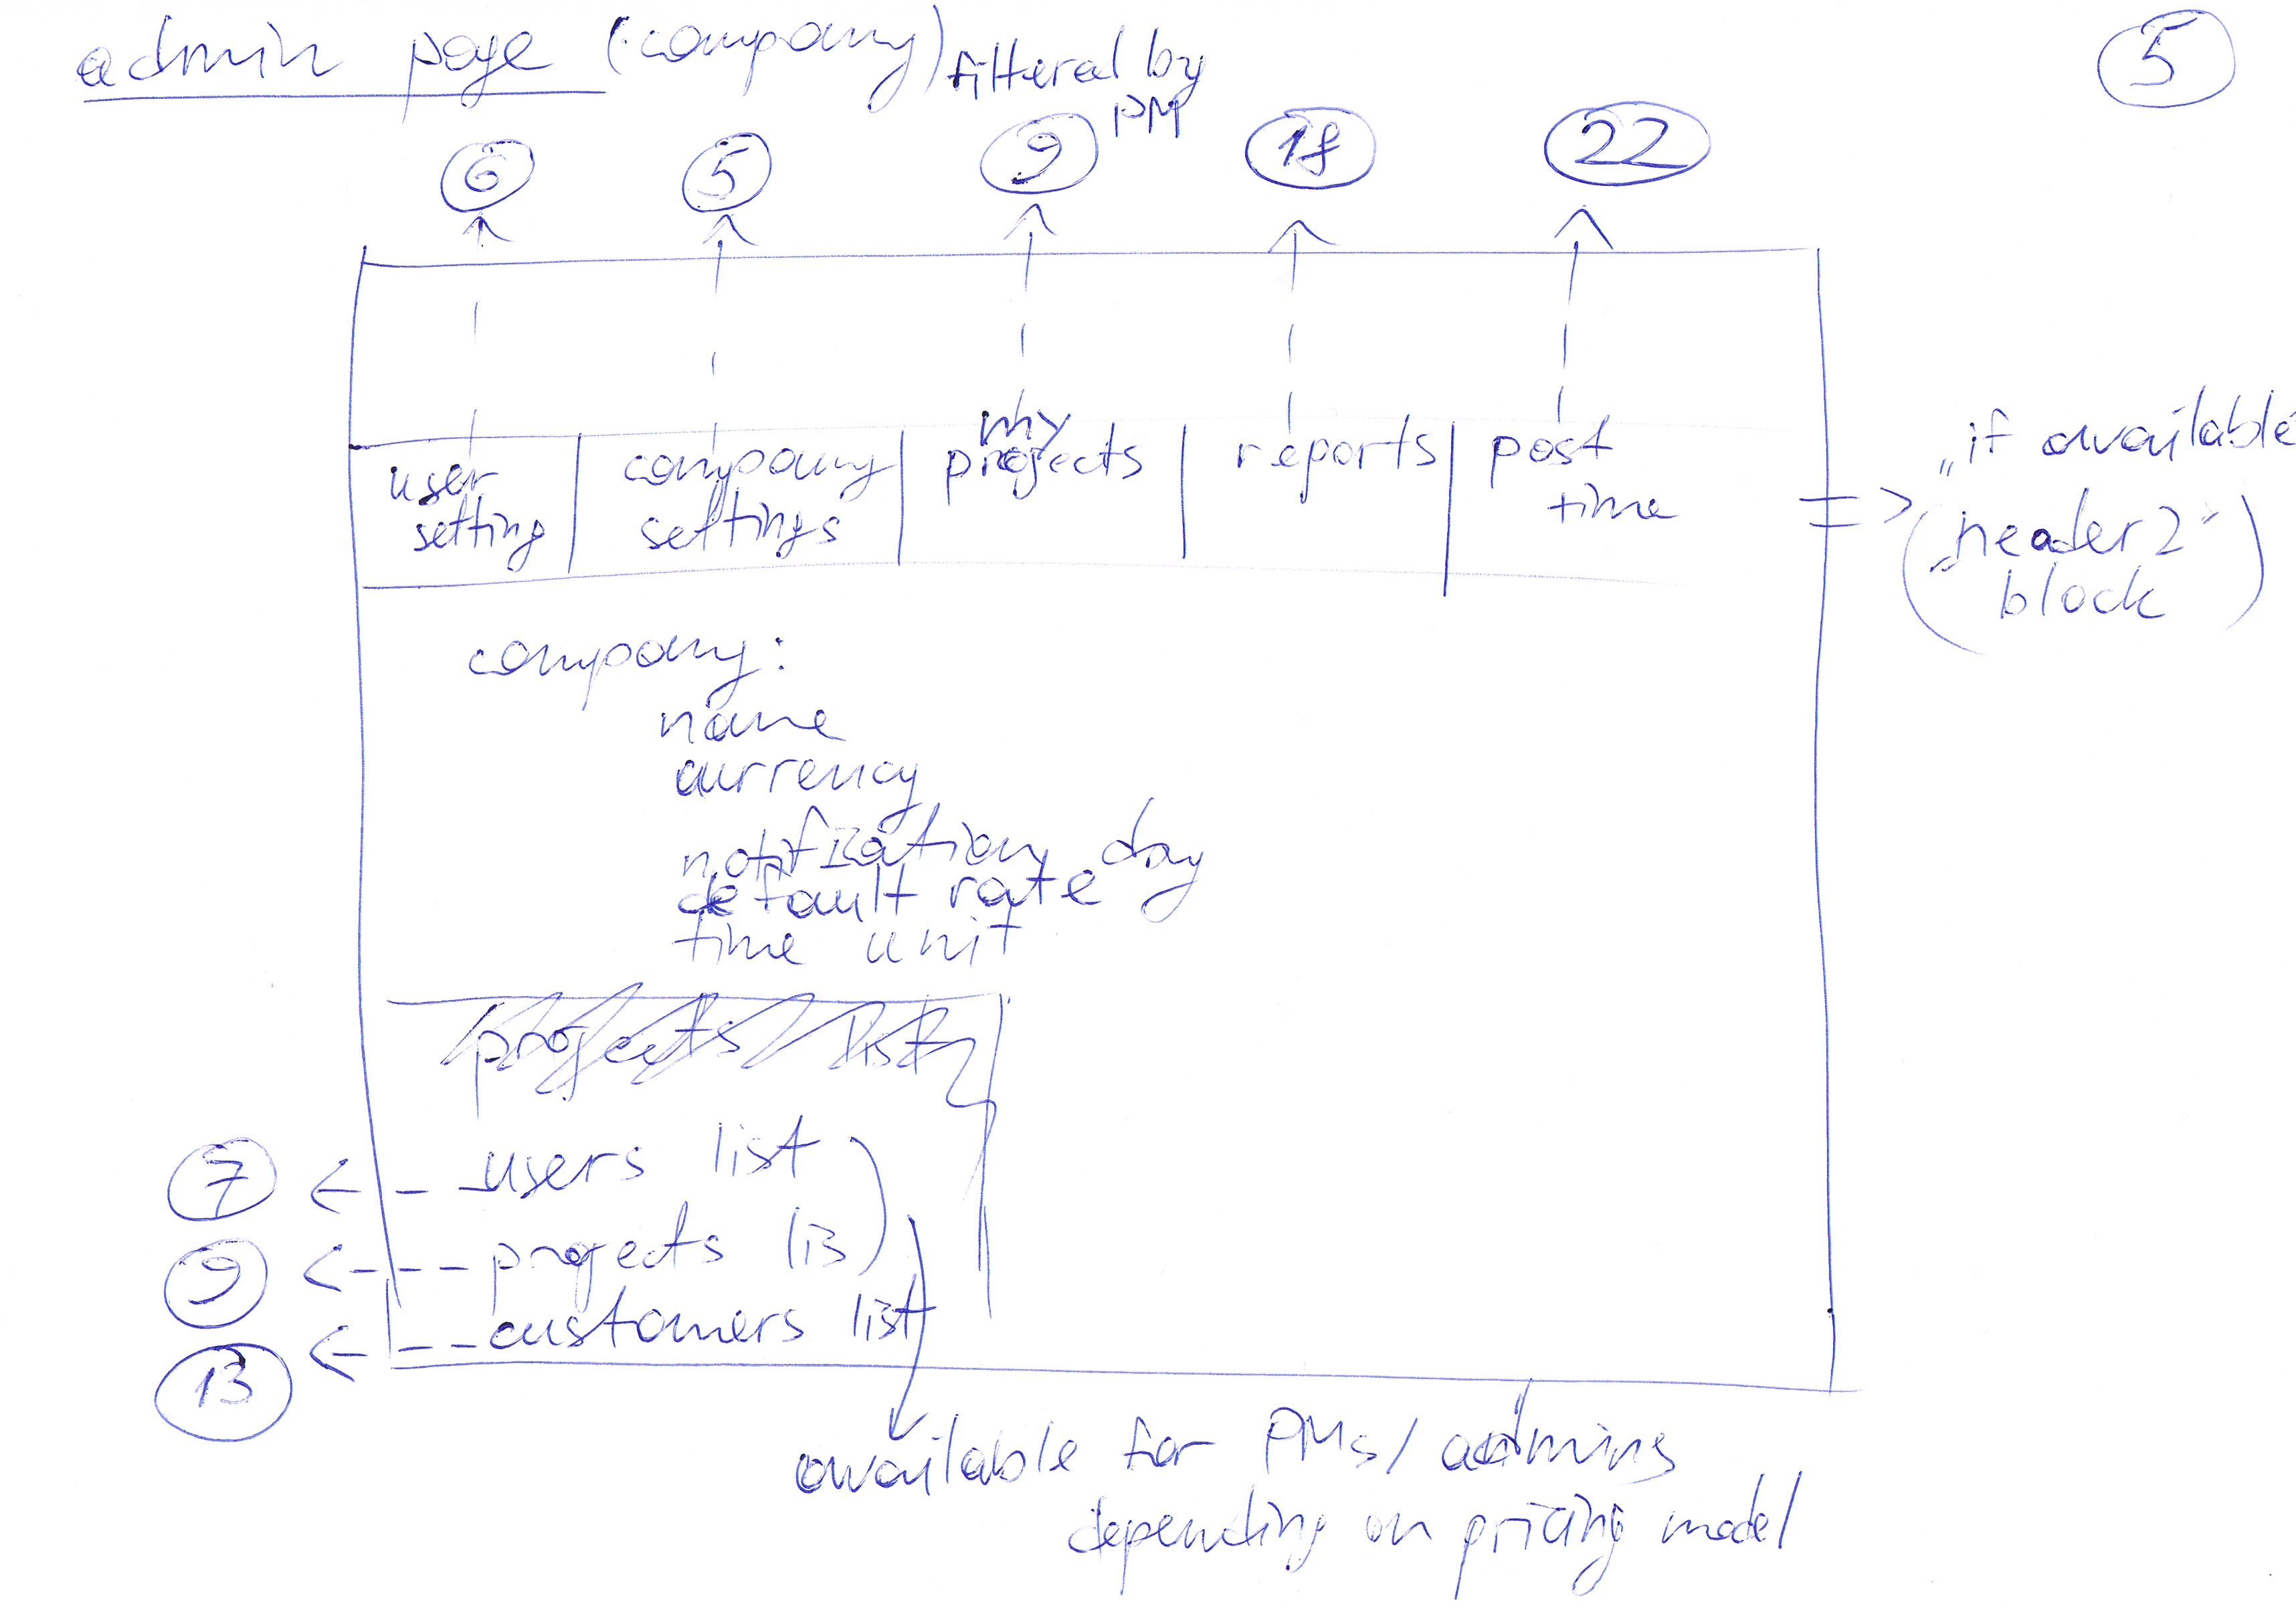 admin page (company)
filtered by
PM
5
6
5
9
18
22
user
setting
company
settings
my
projects
reports
post
time
=> „if available
(„header2"
block)
company:
name
currency
notification day
default rate
time unit
projects list
7 <- - - users list
9 <- - - projects lis
13 <- - - customers list
available for PMs/admins
depending on pricing model